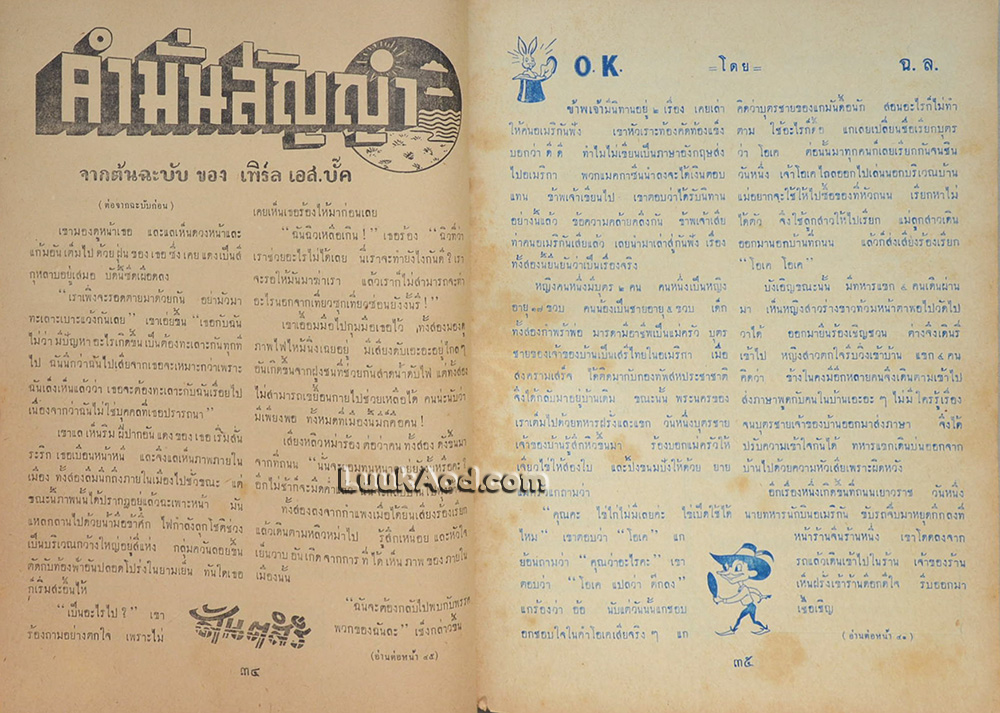 คำมั่นสัญญา
จากต้นฉะบับ ของ เพิร์ล เอส.บั๊ค
(ต่อจากฉะบับก่อน)
เขามองดูหน้าเธอ และแลเห็นดวงหน้าและ
แก้มอันเต็มไปด้วยฝุ่นของเธอ ซึ่งเคยแดงเป็นสี
กุหลาบอยู่เสมอ บัดนี้ซีดเผือดลง
"เราเพิ่งจะรอดตายมาด้วยกัน อย่ามัวมา
ทะเลาะเบาะแว้งกันเลย" เขาเอ่ยขึ้น "เธอกับฉัน
ไม่ว่ามีปัญหาอะไรเกิดขึ้นเป็นต้องทะเลาะกันทุกที
ไป ฉันนึกว่าฉันไปเสียจากเธอจะเหมาะกว่าเพราะ
ฉันเล็งเห็นแล้วว่า เธอจะต้องทะเลาะกับฉันเรื่อยไป
เนื่องจากว่าฉันไม่ใช่บุคคลที่เธอปรารถนา"
เขาแลเห็นริมฝีปากอันแดงของเธอ เริ่มสั่น
ระริก เธอเบือนหน้าหนี และจึงแลเห็นภาพภายใน
เมือง ทั้งสองลืมนึกถึงภายในเมืองไปชั่วขณะ แต่
ขณะนั้นภาพนั้นได้ปรากฏอยู่แล้วฉะเพาะหน้า มัน
แหลกลานไปด้วยน้ำมือข้าศึก ไฟกำลังลุกโชติช่วง
เป็นบริเวณกว้างใหญ่อยู่สี่แห่ง กลุ่มควันลอยขึ้น
ตัดกับท้องฟ้าอันปลอดโปร่งในยามเย็น ทันใดเธอ
ก็เริ่มสะอื้นไห้
"เป็นอะไรไป ?" เขา
ร้องถามอย่างตกใจ เพราะไม่
เคยเห็นเธอร้องไห้มาก่อนเลย
"ฉันฉิวเหลือเกิน !" เธอร้อง "ฉิวที่ว่า
เราช่วยอะไรไม่ได้เลย นี่เราจะทำยังไงกันดี ? เรา
จะรอให้มันมาฆ่าเรา แล้วเราก็ไม่สามารถจะทำ
อะไรนอกจากเที่ยวซุกเที่ยวซ่อนยังงั้นรึ !"
เขาเอื้อมมือไปกุมมือเธอไว้ ทั้งสองมองดู
ภาพไฟไหม้นิ่งเฉยอยู่ มีเสียงดับเอะอะอยู่ไกลๆ
อันเกิดขึ้นจากฝูงชนที่ช่วยกันสาดน้ำดับไฟ แต่ทั้งสอง
ไม่สามารถเขยื้อนกายไปช่วยเหลือได้ คนน่ะนับว่า
มีเพียงพอ ทั้งหมดที่เมืองนั้นมีก็คือคน !
เสียงหลวงหม่าร้อง ต่อว่าคนทั้งสอง ดังขึ้นมา
จากที่ถนน
ทั้งสองลงจากกำแพงเมื่อได้ยินเสียงร้องเรียก
แล้วเดินตามหลวงหม่าไป รู้สึกเหนื่อย และหัวใจ
เย็นวาบ อันเกิดจากการที่ได้เห็นภาพของภายใน
เมืองนั้น
"ฉันจะต้องกลับไปพบกับพรรค
พวกของฉันละ" เช็งกล่าวขึ้น
(อ่านต่อหน้า ๔๕)
๓๔
O. K. =โดย= ฉ. ล.
ข้าพเจ้ามีนิทานอยู่ ๒ เรื่อง เคยเล่า
ให้คนอเมริกันฟัง เขาหัวเราะท้องคัดท้องแข็ง
บอกว่า ดี ดี ทำไมไม่เขียนเป็นภาษาอังกฤษส่ง
ไปอเมริกา พวกแมกาซีนนำลงจะได้เงินตอบ
แทน ข้าพเจ้าเขียนไป เขาตอบว่าได้รับนิทาน
อย่างนี้แล้ว ข้อความคล้ายคลึงกัน ข้าพเจ้าเสีย
ท่าคนอเมริกันเสียแล้ว เลยนำมาเล่าสู่กันฟัง เรื่อง
ทั้งสองนี้ยืนยันว่าเป็นเรื่องจริง
หญิงคนหนึ่งมีบุตร ๒ คน คนหนึ่งเป็นหญิง
อายุ ๑๗ ขวบ คนน้องเป็นชายอายุ ๕ ขวบ เด็ก
ทั้งสองกำพร้าพ่อ มารดามีอาชีพเป็นแม่ครัว บุตร
ชายของเจ้าของบ้านเป็นเสรีไทยในอเมริกา เมื่อ
สงครามเสร็จ ได้ติดมากับกองทัพสหประชาชาติ
จึงได้กลับมาอยู่บ้านเดิม ขณะนั้น พระนครของ
เราเต็มไปด้วยทหารฝรั่งและแขก วันหนึ่งบุตรชาย
เจ้าของบ้านรู้สึกหิวขึ้นมา ร้องบอกแม่ครัวให้
เจียวไข่ให้สองใบ และปิ้งขนมปังให้ด้วย ยาย
"คุณคะ ไข่ไก่ไม่มีเลยค่ะ ไข่เป็ดใช้ได้
ไหม" เขาตอบว่า "โอเค" แก
ย้อนถามว่า "คุณว่าอะไรคะ" เขา
ตอบว่า "โอเค แปลว่า ตกลง"
แกร้องว่า อ้อ นับแต่วันนั้นแกชอบ
อกชอบใจในคำโอเคเสียจริง ๆ แก
คิดว่าบุตรชายของแกมันดื้อนัก สอนอะไรก็ไม่ทำ
ตาม ใช้อะไรก็ดื้อ แกเลยเปลี่ยนชื่อเรียกบุตร
ว่า โอเค ต่อนั้นมาทุกคนก็เลยเรียกกันจนชิน
วันหนึ่ง เจ้าโอเคไถลออกไปเล่นนอกบริเวณบ้าน
แม่อยากจะใช้ให้ไปซื้อของที่หัวถนน เรียกหาไม่
ได้ตัว จึงใช้ลูกสาวให้ไปเรียก แม่ลูกสาวเดิน
ออกมานอกบ้านที่ถนน แล้วก็ส่งเสียงร้องเรียก
"โอเค โอเค"
บังเอิญขณะนั้น มีทหารแขก ๔ คนเดินผ่าน
มา เห็นหญิงสาวร่างขาวท้วมหน้าตาพอไปวัดไป
วาได้ ออกมายืนร้องเชิญชวน ต่างจึงเดินรี่
เข้าไป หญิงสาวตกใจรีบวิ่งเข้าบ้าน แขก ๔ คน
คิดว่า ข้างในคงมีอีกหลายคนจึงเดินตามเข้าไป
ส่งภาษาพูดกับคนในบ้านเอะอะ ๆ ไม่มีใครรู้เรื่อง
จนบุตรชายเจ้าของบ้านออกมาส่งภาษา จึงได้
ปรับความเข้าใจกันได้ ทหารแขกเดินบ่นออกจาก
บ้านไปด้วยความหัวเสียเพราะผิดหวัง
อีกเรื่องหนึ่งเกิดขึ้นที่ถนนเยาวราช วันหนึ่ง
นายทหารนักบินอเมริกัน ขับรถจี๊บมาหยุดกึกลงที่
หน้าร้านจีนร้านหนึ่ง เขาโดดลงจาก
รถแล้วเดินเข้าไปในร้าน เจ้าของร้าน
เห็นฝรั่งเข้าร้านดีอกดีใจ รีบออกมา
เชื้อเชิญ
(อ่านต่อหน้า ๔๑)
๓๕
LuukAod.com